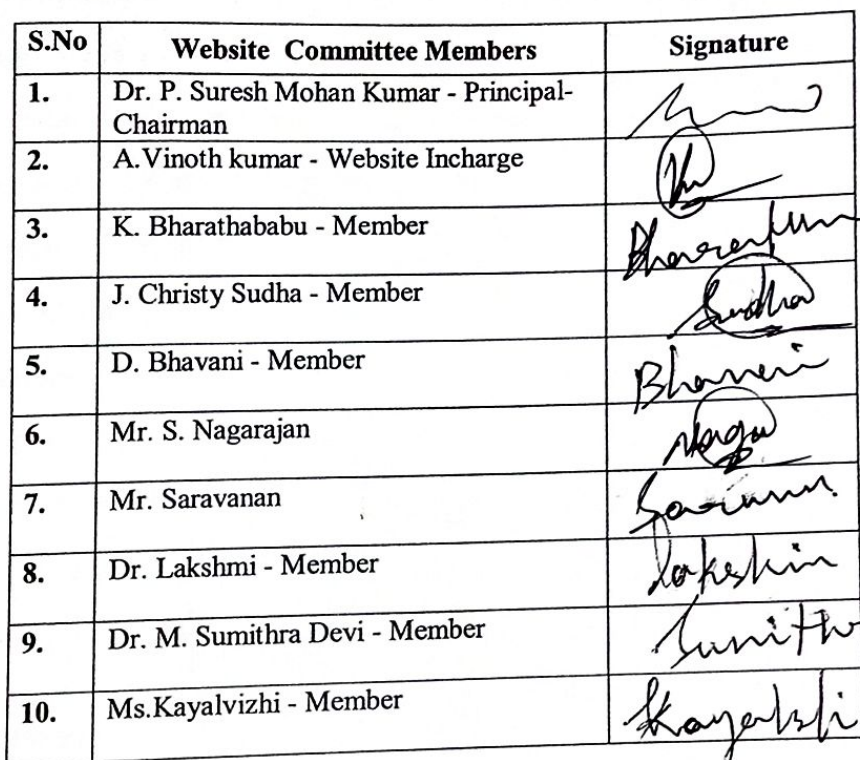 S.No Website Committee Members Signature
1. Dr. P. Suresh Mohan Kumar - Principal-
Chairman
2. A.Vinoth kumar - Website Incharge
3. K. Bharathababu - Member
4. J. Christy Sudha - Member
Sudha
5. D. Bhavani - Member
6. Mr. S. Nagarajan
7. Mr. Saravanan
8. Dr. Lakshmi - Member
9. Dr. M. Sumithra Devi - Member
10. Ms.Kayalvizhi - Member